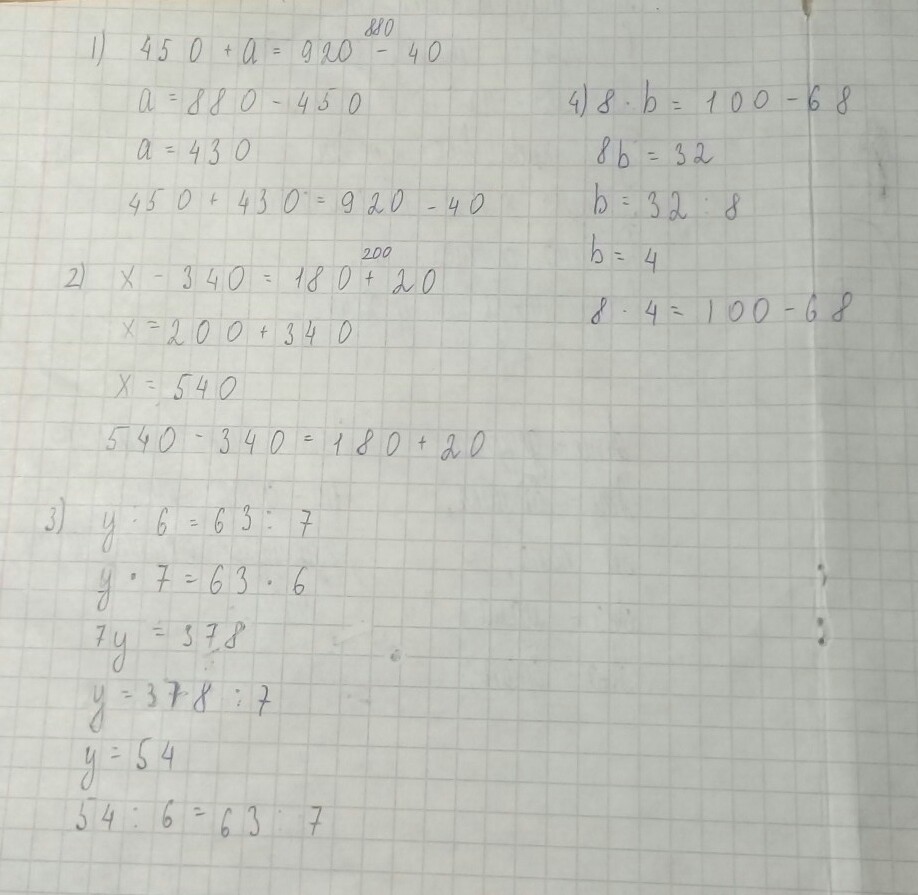 1) 450 + a = 920 - 40
880
a = 880 - 450
a = 430
450 + 430 = 920 - 40
2) x - 340 = 180 + 20
200
x = 200 + 340
x = 540
540 - 340 = 180 + 20
3) y : 6 = 63 : 7
y · 7 = 63 · 6
7y = 378
y = 378 : 7
y = 54
54 : 6 = 63 : 7
4) 8 · b = 100 - 68
8b = 32
b = 32 : 8
b = 4
8 · 4 = 100 - 68